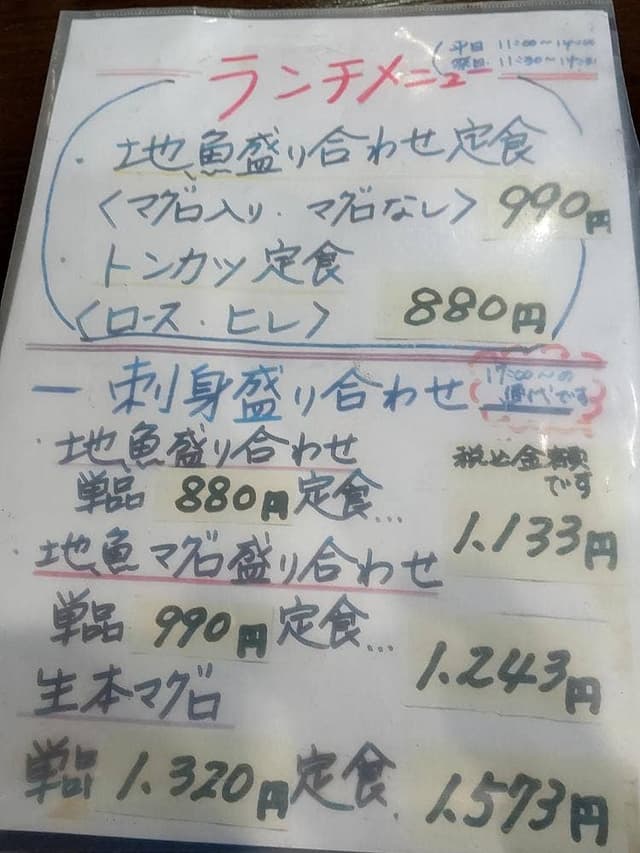 ランチメニュー
平日 11:00〜14:00
11:30〜14:30
・地魚盛り合わせ定食
〈マグロ入り・マグロなし〉 990円
・トンカツ定食
〈ロース・ヒレ〉 880円
一 刺身盛り合わせ
17:00〜の
です
・地魚盛り合わせ
税込金額
です
単品 880円 定食... 1.133円
地魚マグロ盛り合わせ
単品 990円 定食... 1.243円
生本マグロ
単品 1.320円 定食. 1.573円